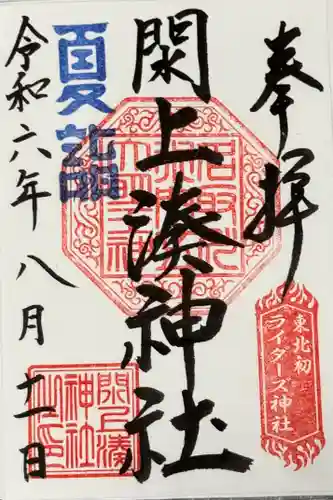 奉拝
東北初
ライダーズ神社
閖上湊神社
夏詣
令和六年八月十一日
閖上湊
神社
之印